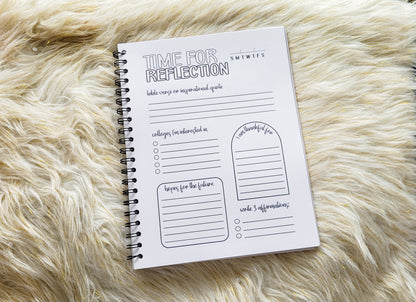 TIME FOR
S M T W T F S
REFLECTION
bible verse or inspirational quote
colleges i'm interested in
i am thankful for
hopes for the future
write 3 affirmations: